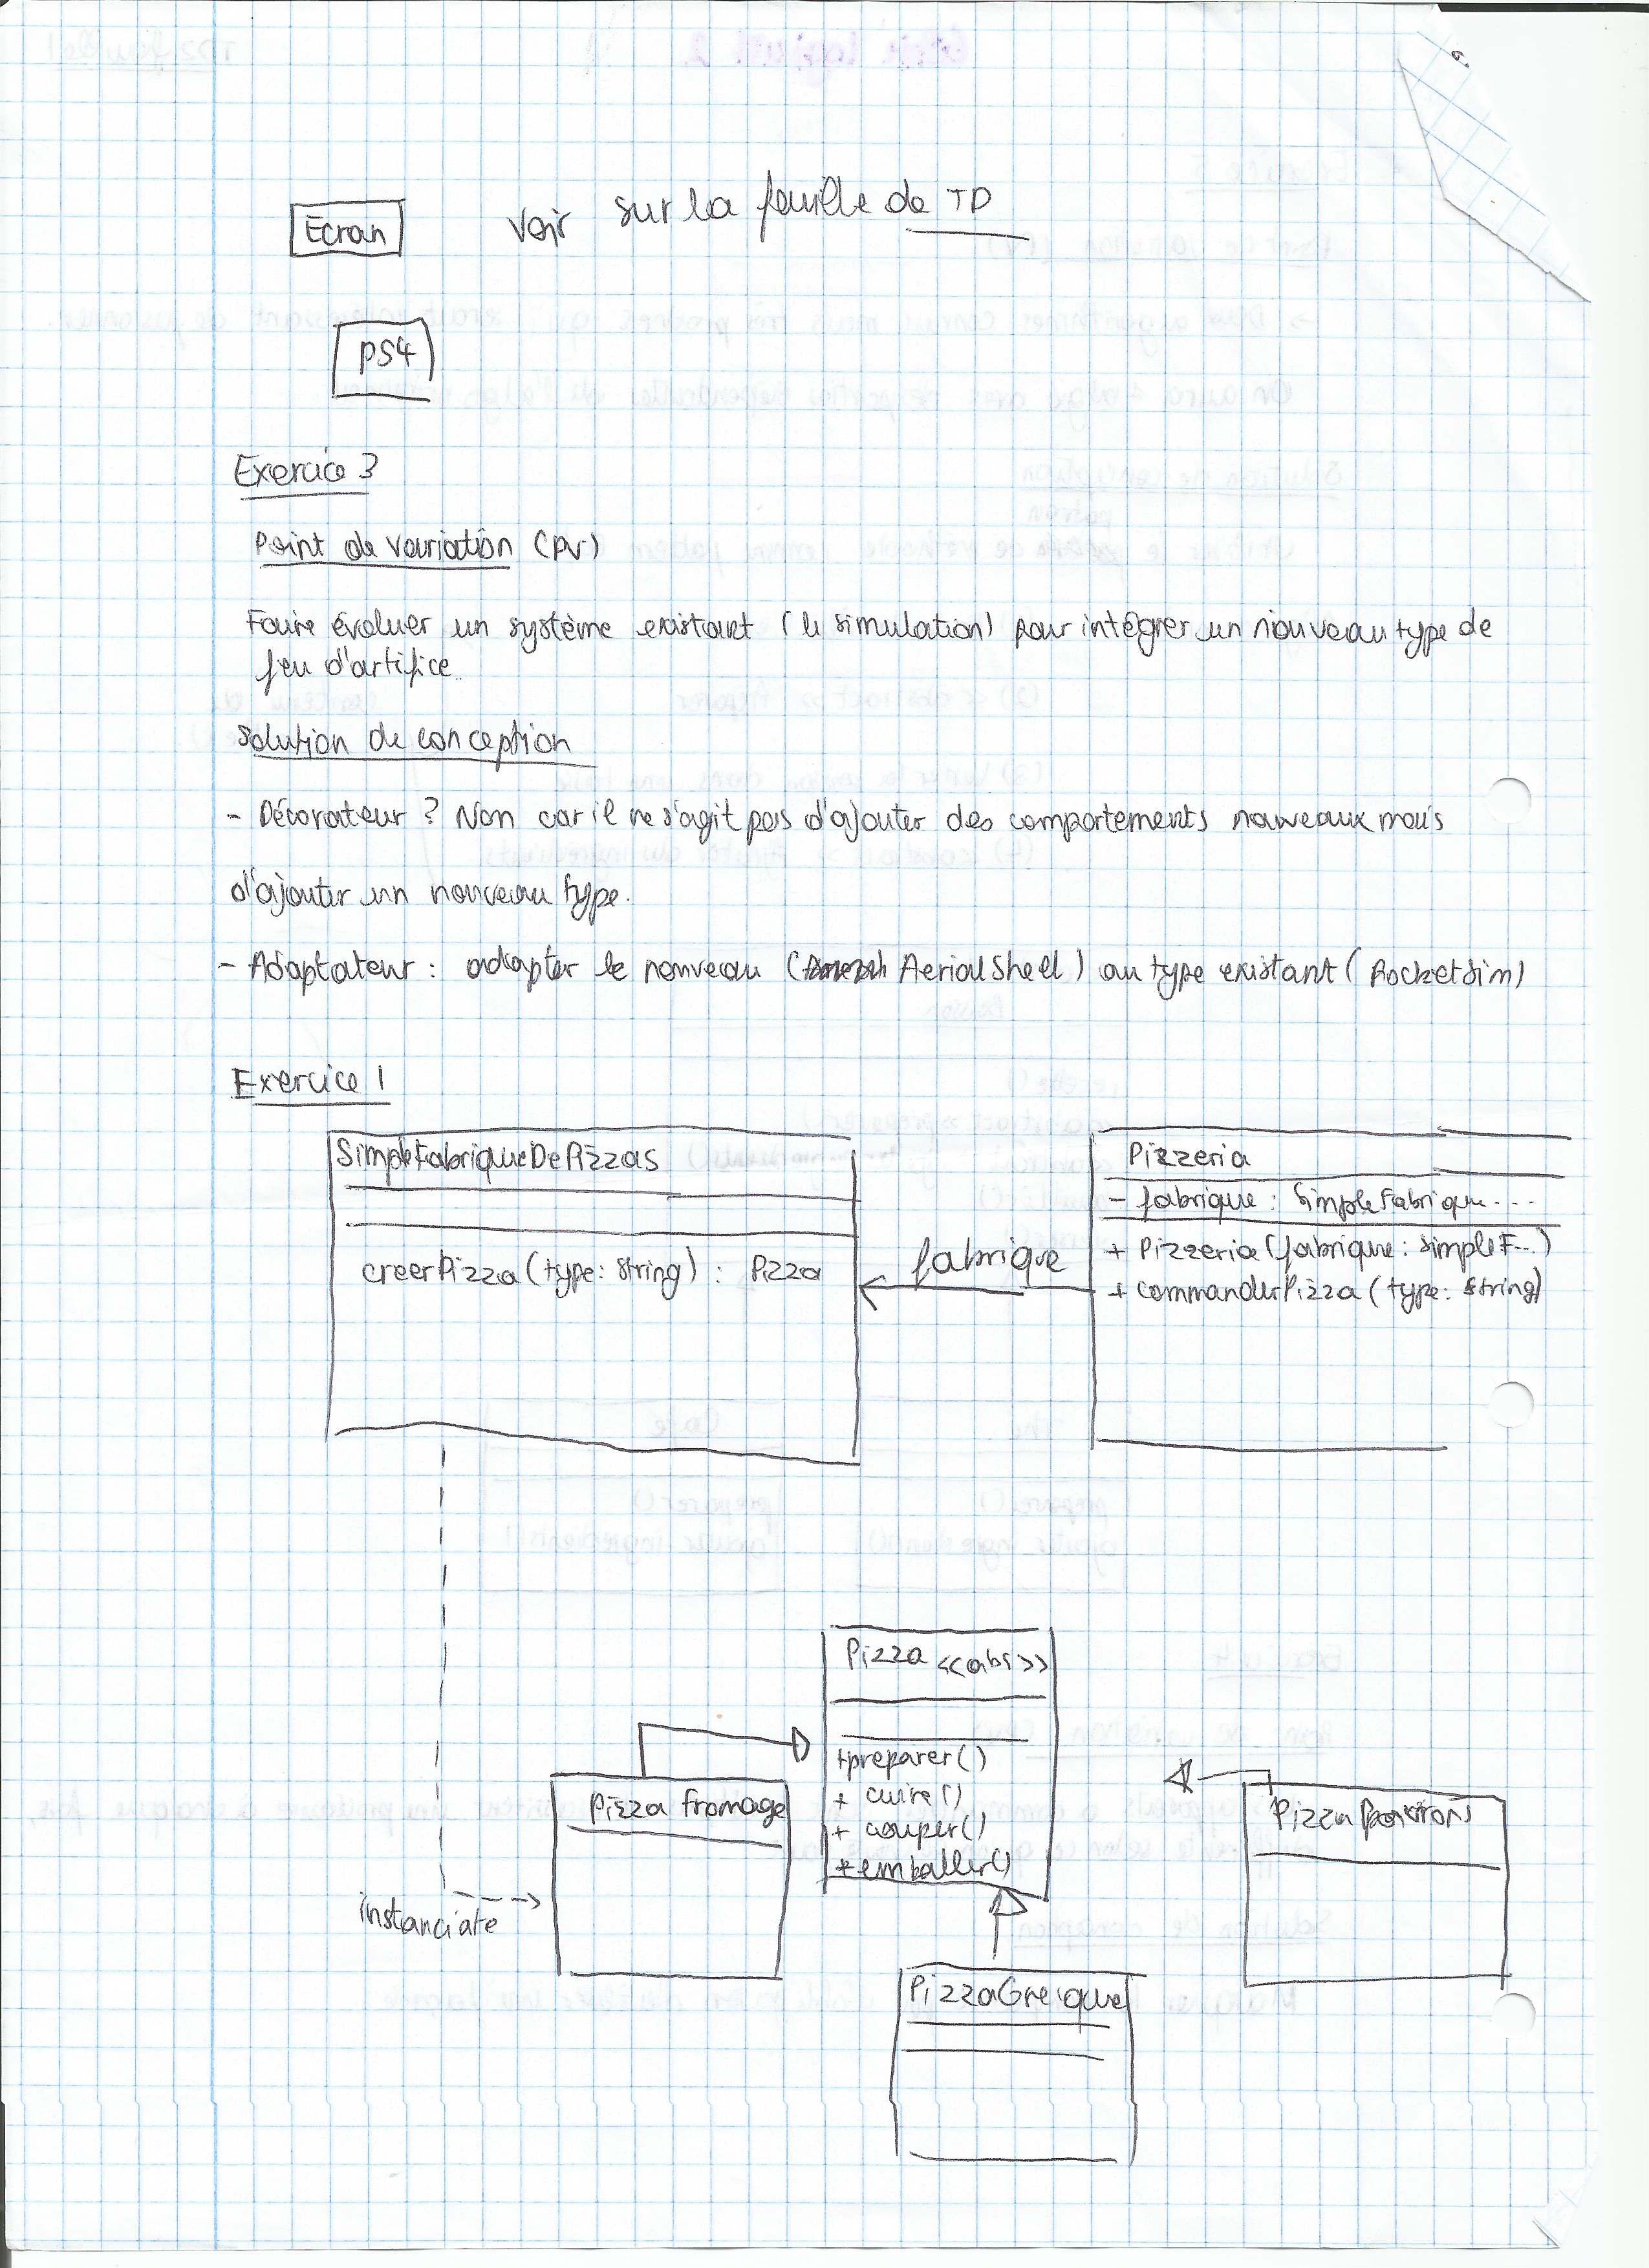 Ecran
Voir sur la feuille de TD
PS4
Exercice 3
Point de variation (PV)
Faire évoluer un système existant (la simulation) pour intégrer un nouveau type de
feu d'artifice.
Solution de conception
- Décorateur ? Non car il ne s'agit pas d'ajouter des comportements nouveaux mais
d'ajouter un nouveau type.
- Adaptateur : adapter le nouveau (AerialShell) au type existant (RocketSim)
Exercice 1
SimpleFabriqueDePizzas
creerPizza (type: String) : Pizza
fabrique
Pizzeria
- fabrique : SimpleFabrique...
+ Pizzeria (fabrique : simpleF...)
+ commanderPizza (type: String)
Pizza <<abs>>
+preparer()
+ cuire()
+ couper()
+ emballer()
Pizza fromage
instanciate
PizzaGrecque
Pizza